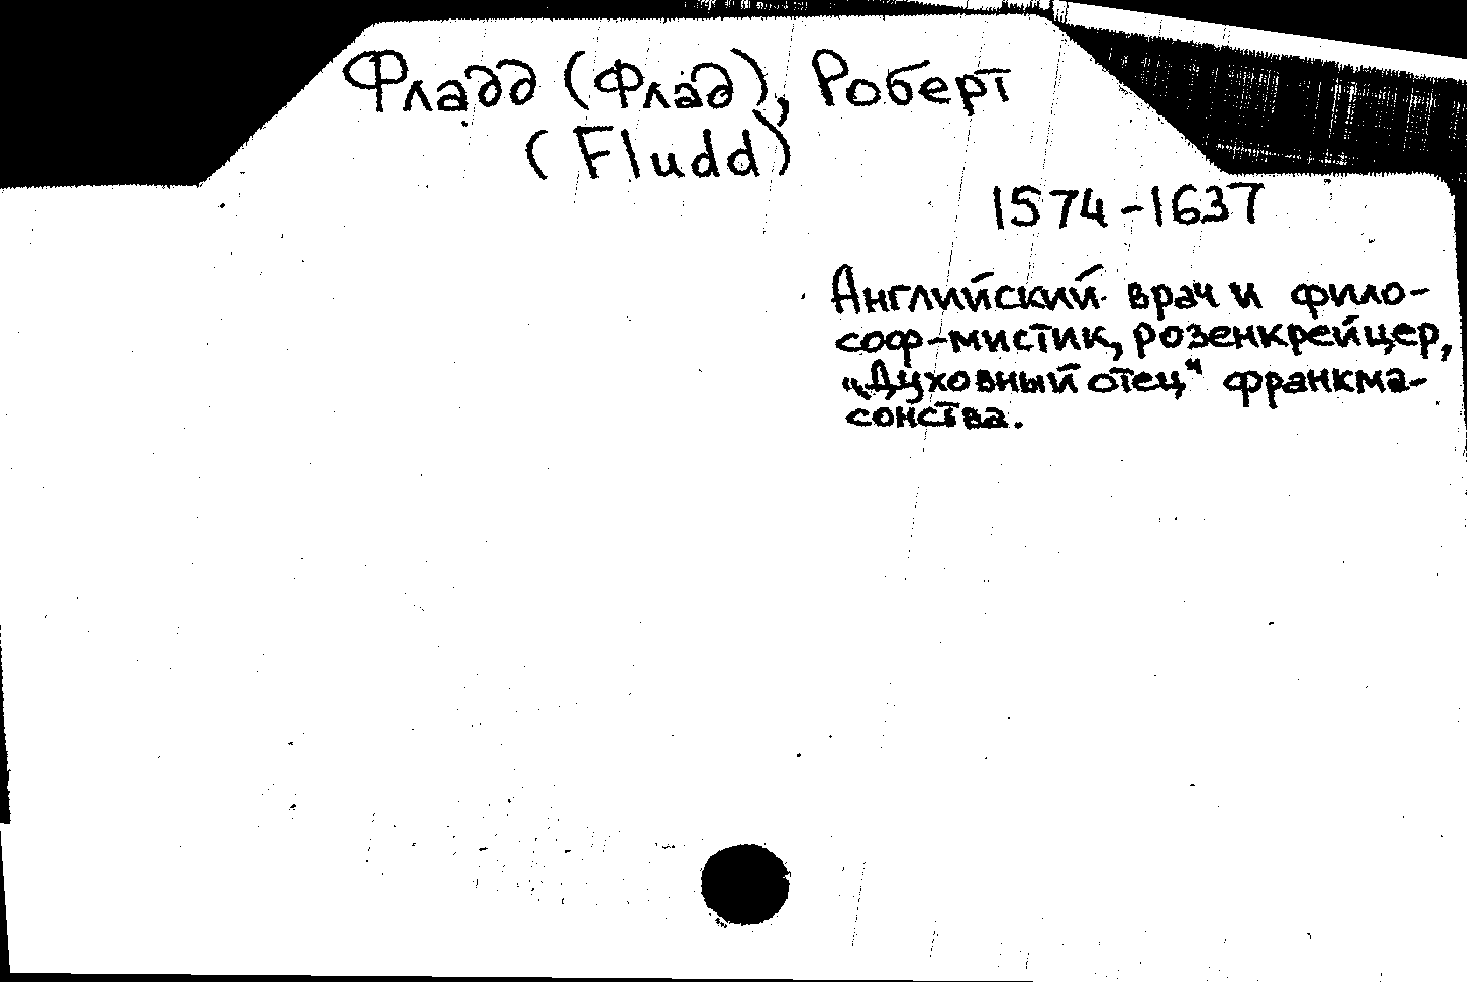 Фладд (Флад), Роберт
(Fludd)
1574-1637
Английский врач и фило-
соф-мистик, розенкрейцер,
„Духовный отец" франкма-
сонства.